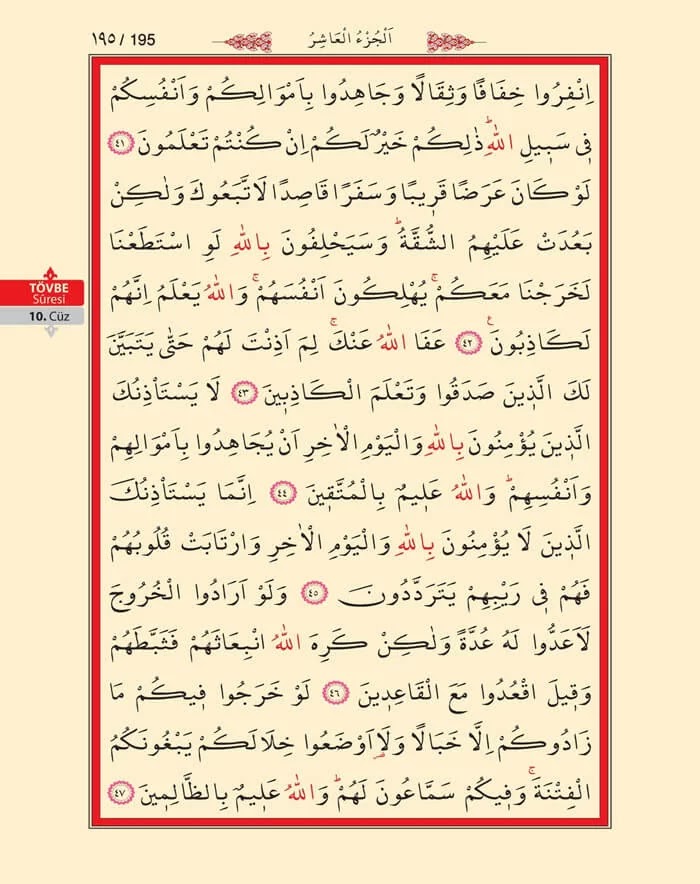 ١٩٥ / 195
اَلْجُزْءُ الْعَاشِرُ
اِنْفِرُوا خِفَافًا وَثِقَالًا وَجَاهِدُوا بِاَمْوَالِكُمْ وَاَنْفُسِكُمْ
ف۪ي سَب۪يلِ اللّٰهِۜ ذٰلِكُمْ خَيْرٌ لَكُمْ اِنْ كُنْتُمْ تَعْلَمُونَ ﴿٤١﴾
لَوْ كَانَ عَرَضًا قَر۪يبًا وَسَفَرًا قَاصِدًا لَاتَّبَعُوكَ وَلٰكِنْ
بَعُدَتْ عَلَيْهِمُ الشُّقَّةُۜ وَسَيَحْلِفُونَ بِاللّٰهِ لَوِ اسْتَطَعْنَا
لَخَرَجْنَا مَعَكُمْۚ يُهْلِكُونَ اَنْفُسَهُمْۚ وَاللّٰهُ يَعْلَمُ اِنَّهُمْ
لَكَاذِبُونَ۟ ﴿٤٢﴾ عَفَا اللّٰهُ عَنْكَۚ لِمَ اَذِنْتَ لَهُمْ حَتّٰى يَتَبَيَّنَ
لَكَ الَّذ۪ينَ صَدَقُوا وَتَعْلَمَ الْكَاذِب۪ينَ ﴿٤٣﴾ لَا يَسْتَأْذِنُكَ
الَّذ۪ينَ يُؤْمِنُونَ بِاللّٰهِ وَالْيَوْمِ الْاٰخِرِ اَنْ يُجَاهِدُوا بِاَمْوَالِهِمْ
وَاَنْفُسِهِمْۜ وَاللّٰهُ عَل۪يمٌ بِالْمُتَّق۪ينَ ﴿٤٤﴾ اِنَّمَا يَسْتَأْذِنُكَ
الَّذ۪ينَ لَا يُؤْمِنُونَ بِاللّٰهِ وَالْيَوْمِ الْاٰخِرِ وَارْتَابَتْ قُلُوبُهُمْ
فَهُمْ ف۪ي رَيْبِهِمْ يَتَرَدَّدُونَ ﴿٤٥﴾ وَلَوْ اَرَادُوا الْخُرُوجَ
لَاَعَدُّوا لَهُ عُدَّةً وَلٰكِنْ كَرِهَ اللّٰهُ انْبِعَاثَهُمْ فَثَبَّطَهُمْ
وَق۪يلَ اقْعُدُوا مَعَ الْقَاعِد۪ينَ ﴿٤٦﴾ لَوْ خَرَجُوا ف۪يكُمْ مَا
زَادُوكُمْ اِلَّا خَبَالًا وَلَا۬اَوْضَعُوا خِلَالَكُمْ يَبْغُونَكُمُ
الْفِتْنَةَۚ وَف۪يكُمْ سَمَّاعُونَ لَهُمْۜ وَاللّٰهُ عَل۪يمٌ بِالظَّالِم۪ينَ ﴿٤٧﴾
TÖVBE
Sûresi
10. Cüz